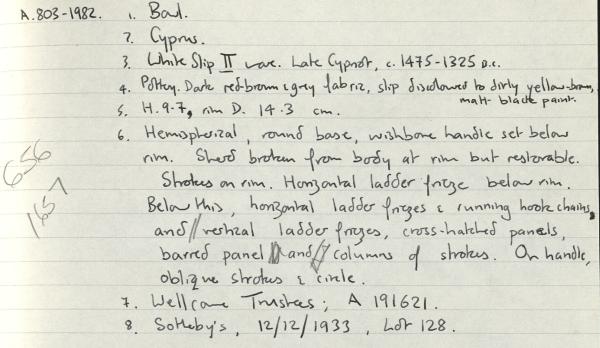 A.803-1982. 1. Bowl.
2. Cyprus.
3. White Slip II ware. Late Cypriot, c. 1475-1325 B.C.
4. Pottery. Dark red-brown & grey fabric, slip discoloured to dirty yellow-brown,
matt black paint.
5. H. 9.7, rim D. 14.3 cm.
6. Hemispherical, round base, wishbone handle set below
rim. Sherd broken from body at rim but restorable.
Strokes on rim. Horizontal ladder frieze below rim.
Below this, horizontal ladder friezes & running hook chains,
and vertical ladder friezes, cross-hatched panels,
barred panel and columns of strokes. On handle,
oblique strokes & circle.
7. Wellcome Trustees; A 191621.
8. Sotheby's, 12/12/1933, Lot 128.
656
1657